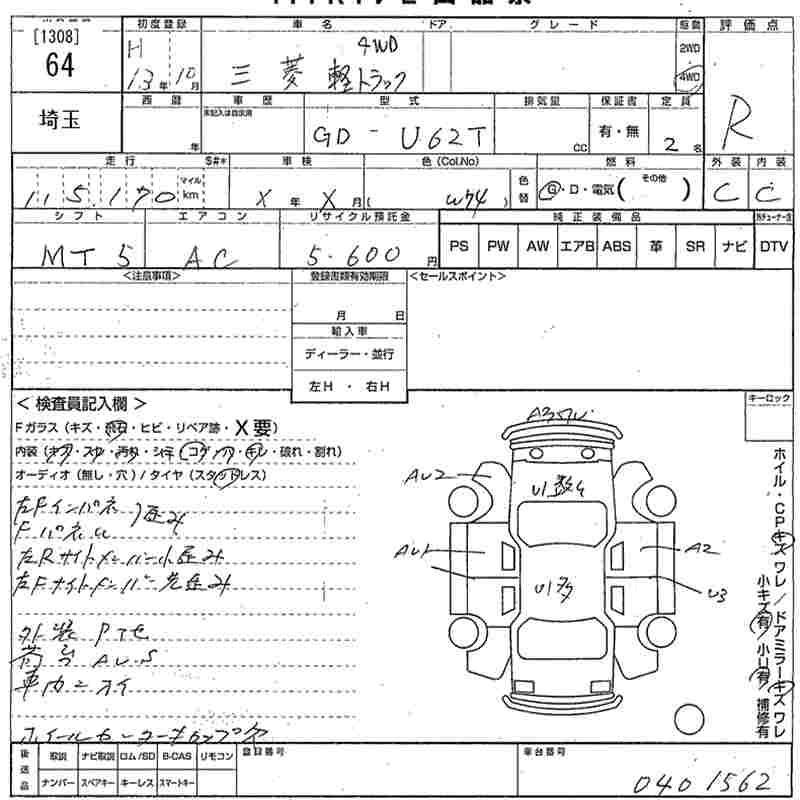 [1308]
64
埼玉
初度登録
H
13年10月
車名
4WD
三菱 軽トラック
ドア
グレード
駆動
2WD
4WD
評価点
R
西暦
年
車歴
未記入は自家用
型式
GD-U62T
排気量
cc
保証書
有・無
定員
2名
走行
S#*
115,170
マイル
km
車検
X年X月
色(Col.No)
(W74)
色替
燃料
G・D・電気( その他 )
外装
C
内装
C
シフト
MT5
エアコン
AC
リサイクル預託金
5.600円
純正装備品
PS
PW
AW
エアB
ABS
革
SR
ナビ
DTV
<注意事項>
登録書類有効期限
月 日
輸入車
ディーラー・並行
左H・右H
<セールスポイント>
<検査員記入欄>
Fガラス(キズ・飛石・ヒビ・リペア跡・X要)
内装(キズ・スレ・汚れ・シミ・コゲ・穴・キレ・破れ・割れ)
オーディオ(無し・穴)/タイヤ(スタッドレス)
左Fインパネ
Fパネル
歪み
左Rサイドメンバー小歪み
左Fサイドメンバー先歪み
外装
荷台 AU.S
キーロック
U1
AU2
AU1
A2
U3
U1多
ホイル・CPキズ ワレ/ドアミラーキズ ワレ
小キズ有/小U有 補修有
後送品
取説
ナビ取説
ロム/SD
B-CAS
リモコン
ナンバー
スペアキー
キーレス
スマートキー
登録番号
車台番号
0401562